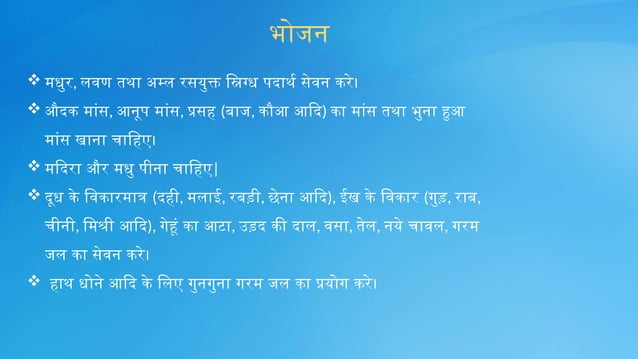 भोजन
❖ मधुर, लवण तथा अम्ल रसयुक्त स्निग्ध पदार्थ सेवन करे।
❖ औदक मांस, आनूप मांस, प्रसह (बाज, कौआ आदि) का मांस तथा भुना हुआ
मांस खाना चाहिए।
❖ मदिरा और मधु पीना चाहिए|
❖ दूध के विकारमात्र (दही, मलाई, रबड़ी, छेना आदि), ईख के विकार (गुड़, राब,
चीनी, मिश्री आदि), गेहूं का आटा, उड़द की दाल, वसा, तेल, नये चावल, गरम
जल का सेवन करे।
❖ हाथ धोने आदि के लिए गुनगुना गरम जल का प्रयोग करे।